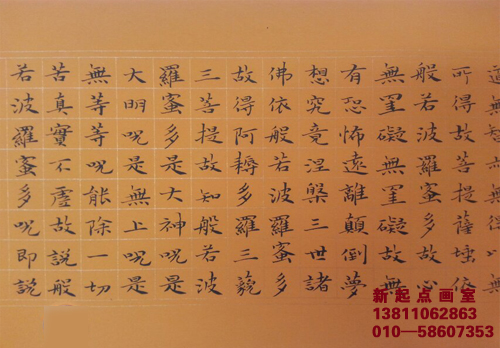 所得故菩提薩埵依
般若波羅蜜多故心
無罣礙無罣礙故無
有恐怖遠離顛倒夢
想究竟涅槃三世諸
佛依般若波羅蜜多
故得阿耨多羅三藐
三菩提故知般若波
羅蜜多是大神呪是
大明呪是無上呪是
無等等呪能除一切
苦真實不虛故說般
若波羅蜜多呪即說
新起点画室
13811062863
010—58607353